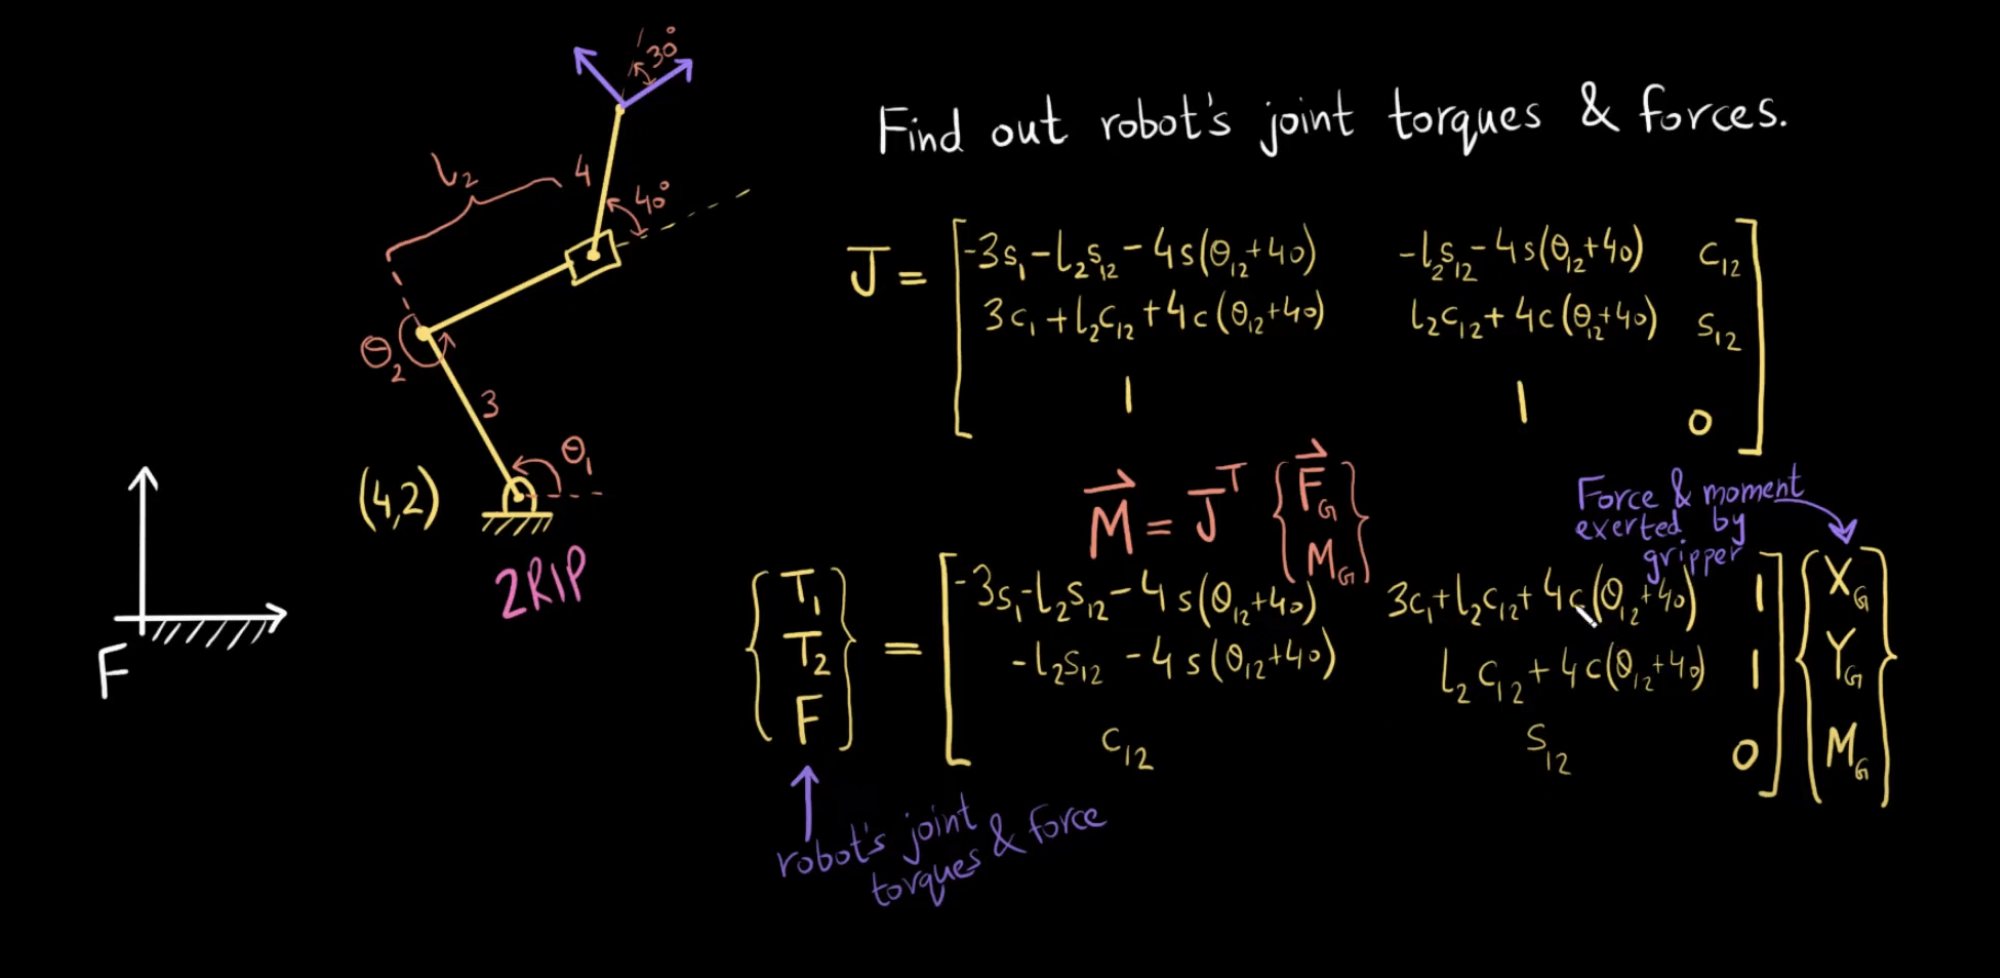 Find out robot's joint torques & forces.
30°
L₂
4
40°
θ₂
3
θ₁
(4,2)
2R1P
F
J̅ = [ -3s₁-L₂s₁₂-4s(θ₁₂+40) -L₂s₁₂-4s(θ₁₂+40) c₁₂
3c₁+L₂c₁₂+4c(θ₁₂+40) L₂c₁₂+4c(θ₁₂+40) s₁₂
1 1 0 ]
M⃗ = J̅ᵀ { F⃗_G
M_G }
Force & moment
exerted by
gripper
{ T₁ T₂ F } = [ -3s₁-L₂s₁₂-4s(θ₁₂+40) 3c₁+L₂c₁₂+4c(θ₁₂+40) 1 ] { X_G
-L₂s₁₂-4s(θ₁₂+40) L₂c₁₂+4c(θ₁₂+40) 1 Y_G
c₁₂ s₁₂ 0 M_G }
robot's joint
torques & force